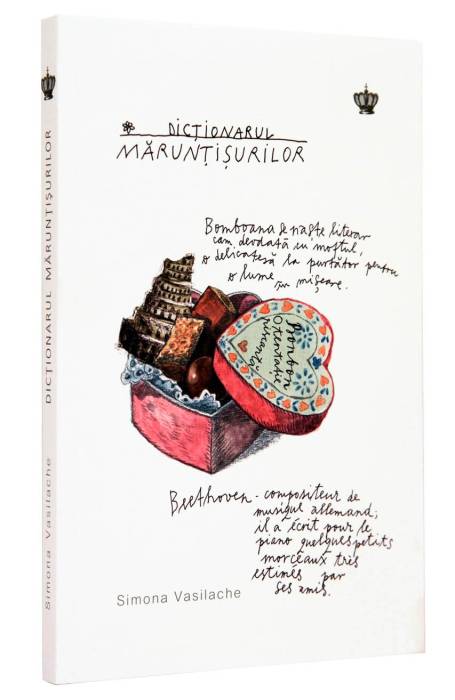 DICȚIONARUL
MĂRUNȚIȘURILOR
Bomboana se naște literar
cam deodată cu moftul,
o delicatesă la purtător pentru
o lume în mișcare.
Bonbon
Ostentație
riscantă
Beethoven - compositeur de
musique allemand;
il a écrit pour le
piano quelques petits
morceaux très
estimés par
ses amis.
Simona Vasilache
Simona Vasilache DICȚIONARUL MĂRUNȚIȘURILOR